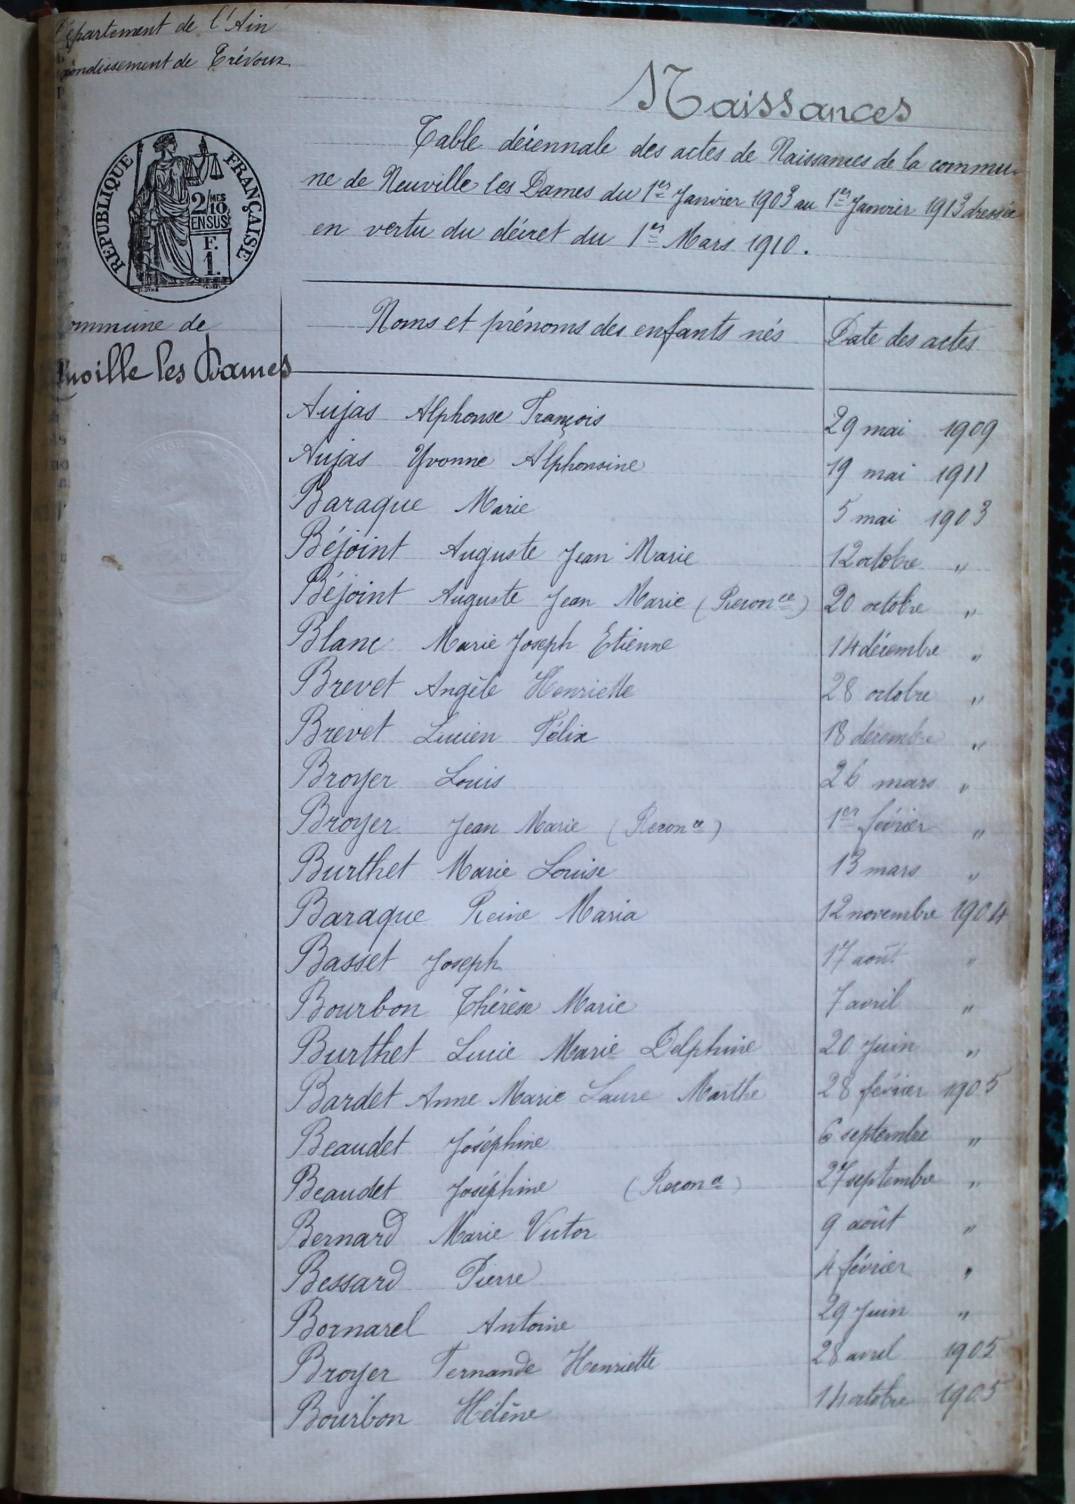 épartement de l'Ain
ondissement de Trévoux
Naissances
Table décennale des actes de Naissances de la commu-
ne de Neuville les Dames du 1er Janvier 1903 au 1er Janvier 1913 dressée
en vertu du décret du 1er Mars 1910.
RÉPUBLIQUE FRANÇAISE
2/10 MES
EN SUS
F.
1.
ommune de
uville les Dames
Noms et prénoms des enfants nés Date des actes
Aujas Alphonse François 29 mai 1909
Aujas Yvonne Alphonsine 19 mai 1911
Baraque Marie 5 mai 1903
Béjoint Auguste Jean Marie 12 octobre "
Béjoint Auguste Jean Marie (Reconce) 20 octobre "
Blanc Marie Joseph Etienne 14 décembre "
Brevet Angèle Henriette 28 octobre "
Brevet Lucien Félix 18 décembre "
Broyer Louis 26 mars "
Broyer Jean Marie (Reconce) 1er février "
Burthet Marie Louise 13 mars "
Baraque Reine Maria 12 novembre 1904
Basset Joseph 17 août "
Bourbon Thérèse Marie 7 avril "
Burthet Lucie Marie Delphine 20 Juin "
Bardet Anne Marie Laure Marthe 28 février 1905
Beaudet Joséphine 6 septembre "
Beaudet Joséphine (Reconce) 27 septembre "
Bernard Marie Victor 9 août "
Bessard Pierre 4 février "
Bornarel Antoine 29 Juin "
Broyer Fernande Henriette 28 avril 1905
Bourbon Hélène 14 octobre 1905